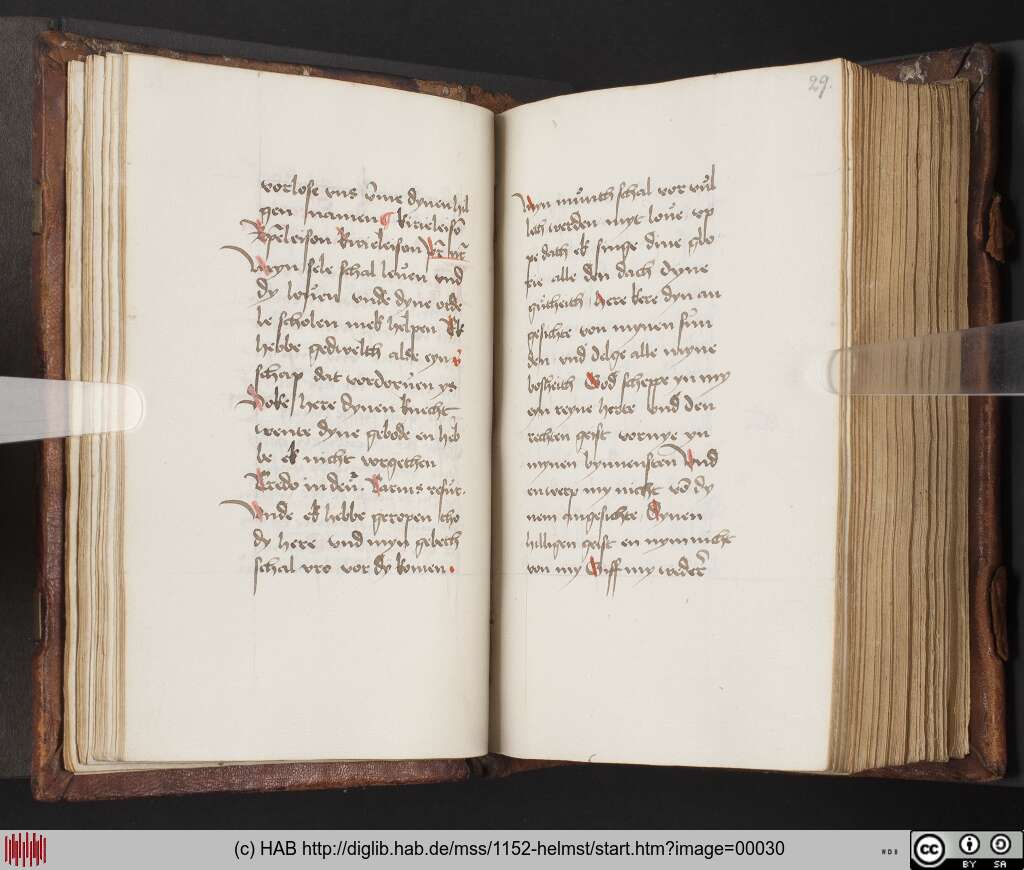 vorlose vns v̄me dynen hil
gen namen ¶ kirieleisō
Xp̄eleison kirieleison Pr̄ nr̄
Myn sele schal leuen vnd
dy louen vnde dyne orde
le scholen mek helpen Ek
hebbe gedwelth alse eyn v̄
schap dat vordoruen ys
Soke here dynen knecht
wente dyne gebode en heb
be ek nicht vorgethen
Credo in deū Carnis resur.
Vnde ek hebbe geropen tho
dy here vnd myn gebeth
schal vro vor dy komen.
29.
Myn munth schal vor vul
leth werden myt loue vp
pe dath ek singe dine glo
rie alle den dach dyne
gutheith Here kere dyn an
gesichte von mynen sun
den vnd delge alle myne
bosheith God scheppe yn my
eyn reyne herte vnd den
rechten geist vornye yn
mynen bynnensten Vnd
enwerp my nicht vō dy
nem angesichte Dynen
hilligen geist en nym nicht
von my Giff my weder̄
(c) HAB http://diglib.hab.de/mss/1152-helmst/start.htm?image=00030
WDB
cc
BY SA